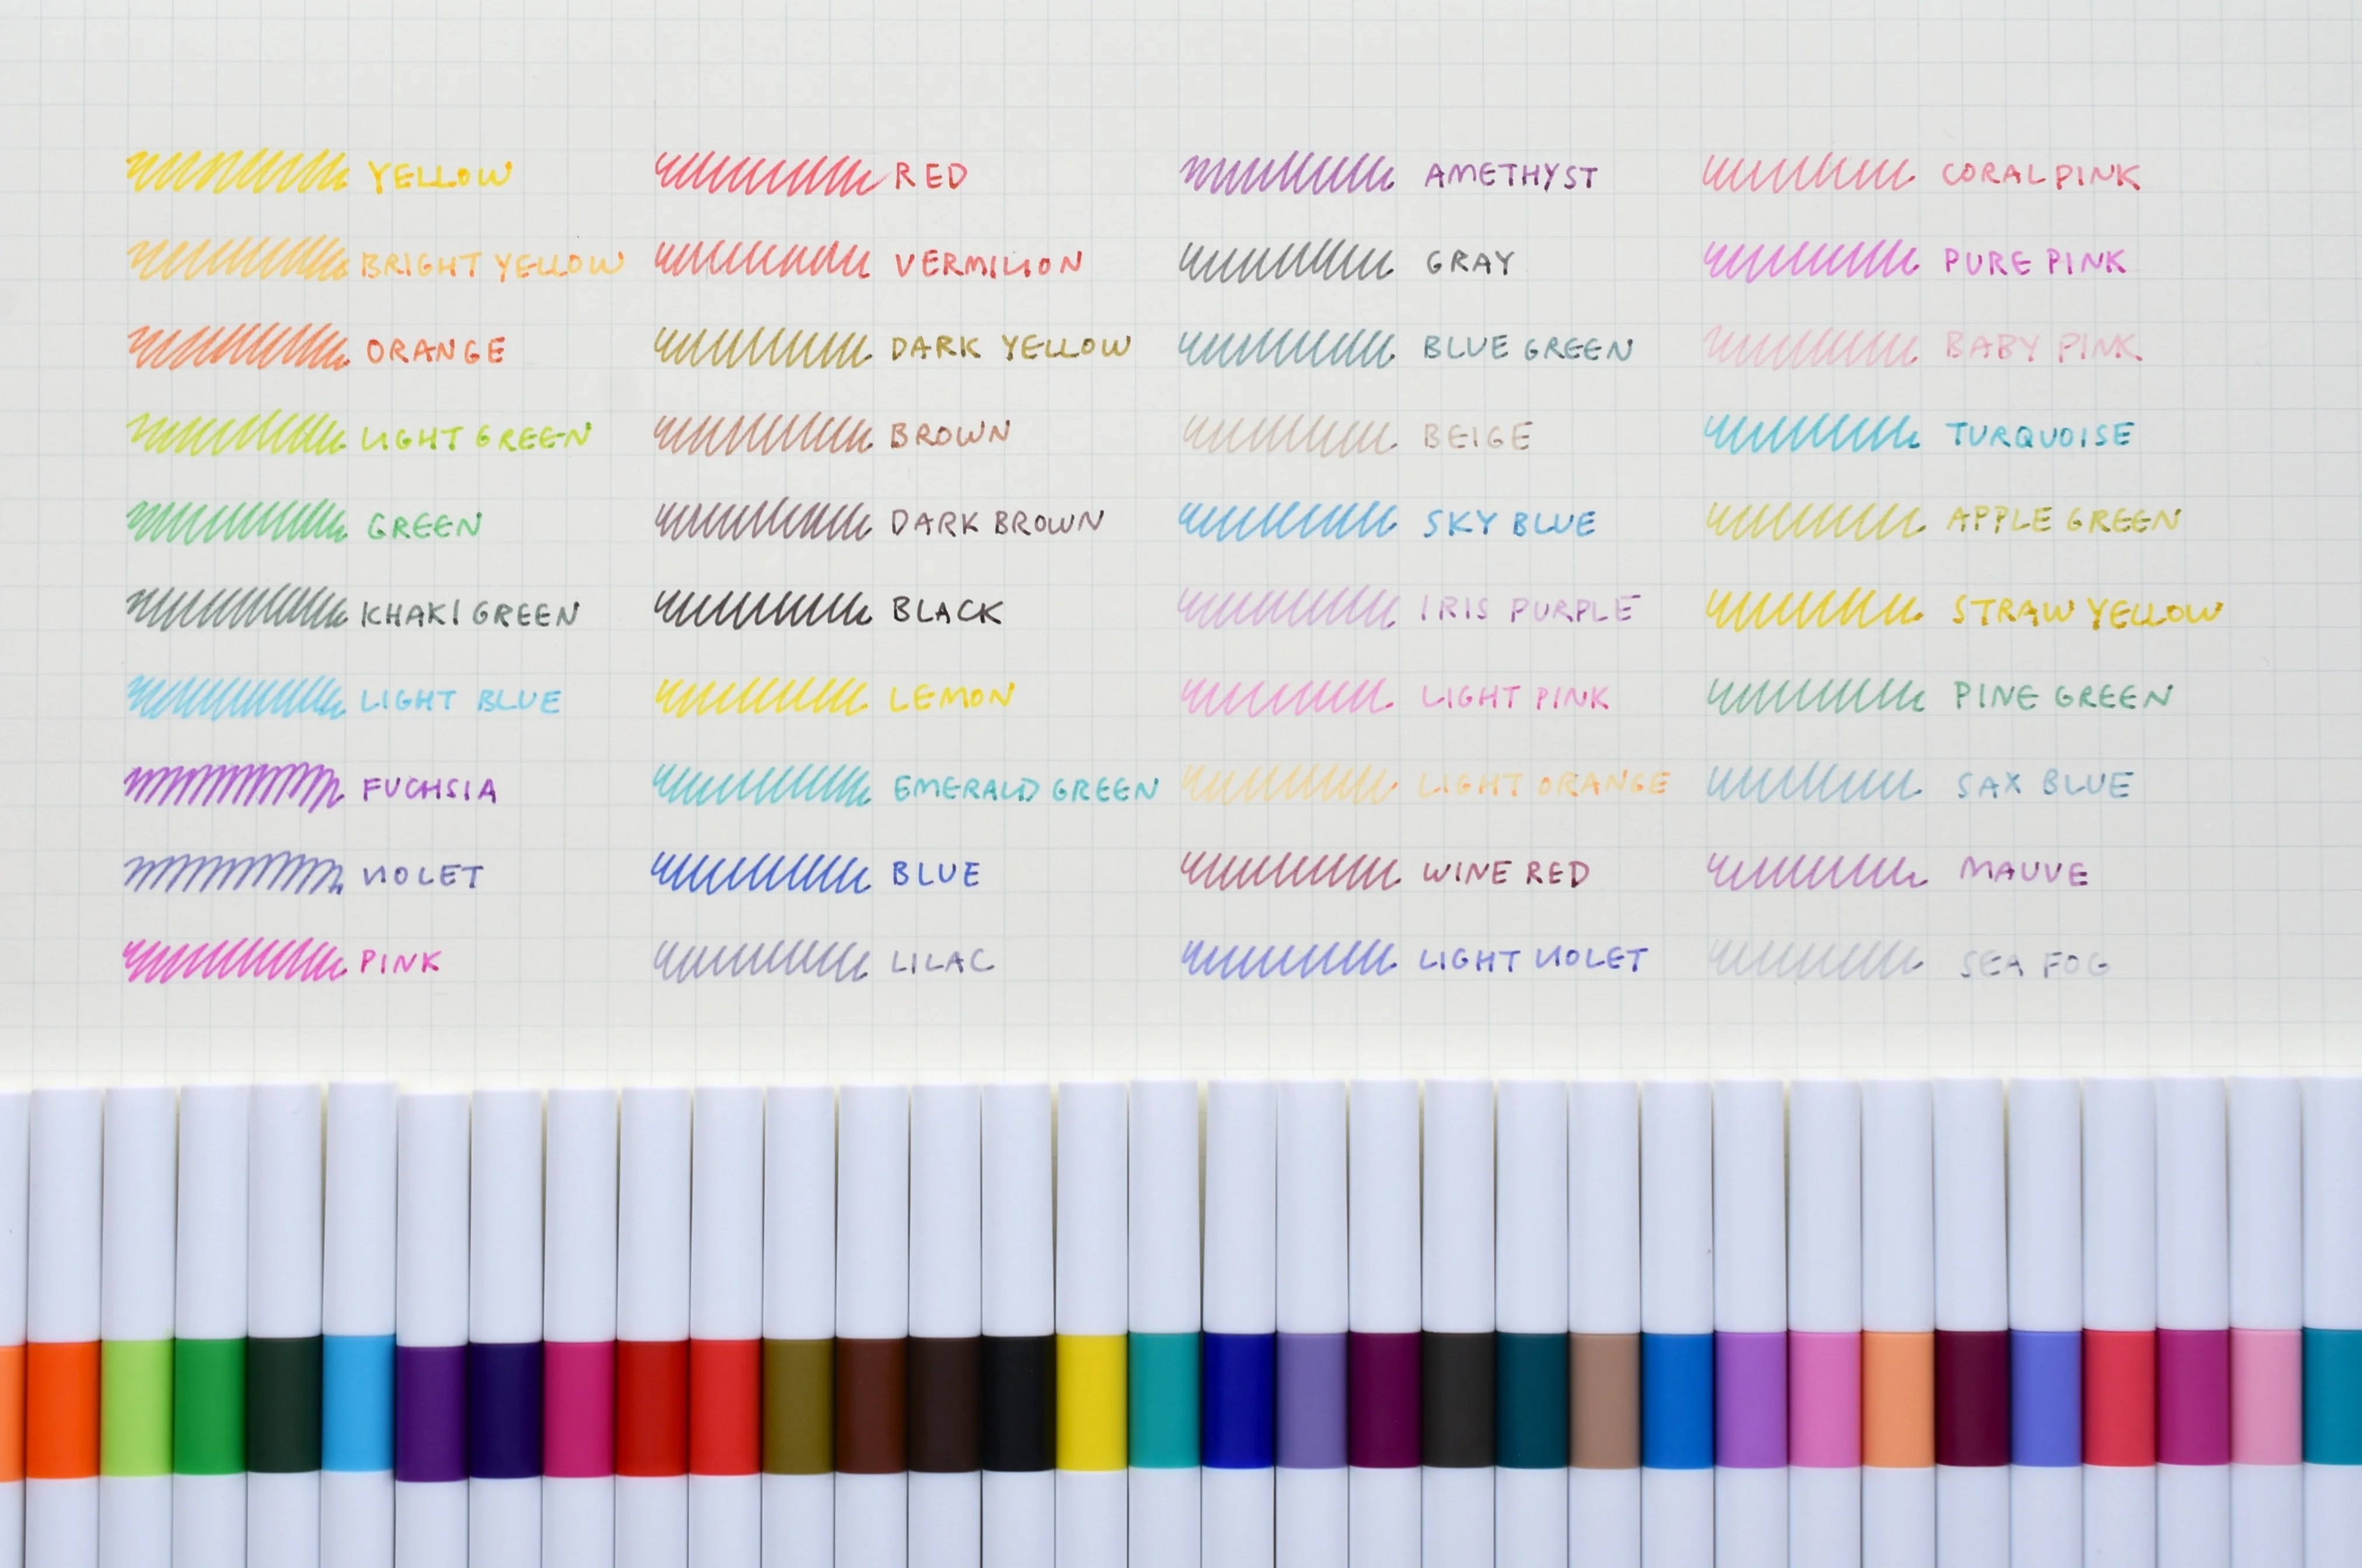 YELLOW
BRIGHT YELLOW
ORANGE
LIGHT GREEN
GREEN
KHAKI GREEN
LIGHT BLUE
FUCHSIA
VIOLET
PINK
RED
VERMILION
DARK YELLOW
BROWN
DARK BROWN
BLACK
LEMON
EMERALD GREEN
BLUE
LILAC
AMETHYST
GRAY
BLUE GREEN
BEIGE
SKY BLUE
IRIS PURPLE
LIGHT PINK
LIGHT ORANGE
WINE RED
LIGHT VIOLET
CORAL PINK
PURE PINK
BABY PINK
TURQUOISE
APPLE GREEN
STRAW YELLOW
PINE GREEN
SAX BLUE
MAUVE
SEA FOG